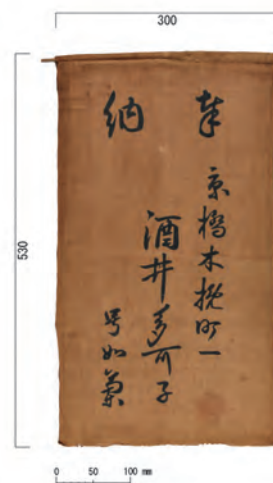 300
530
奉納
京橋木挽町一
酒井多可子
号如蘭
0 50 100 mm